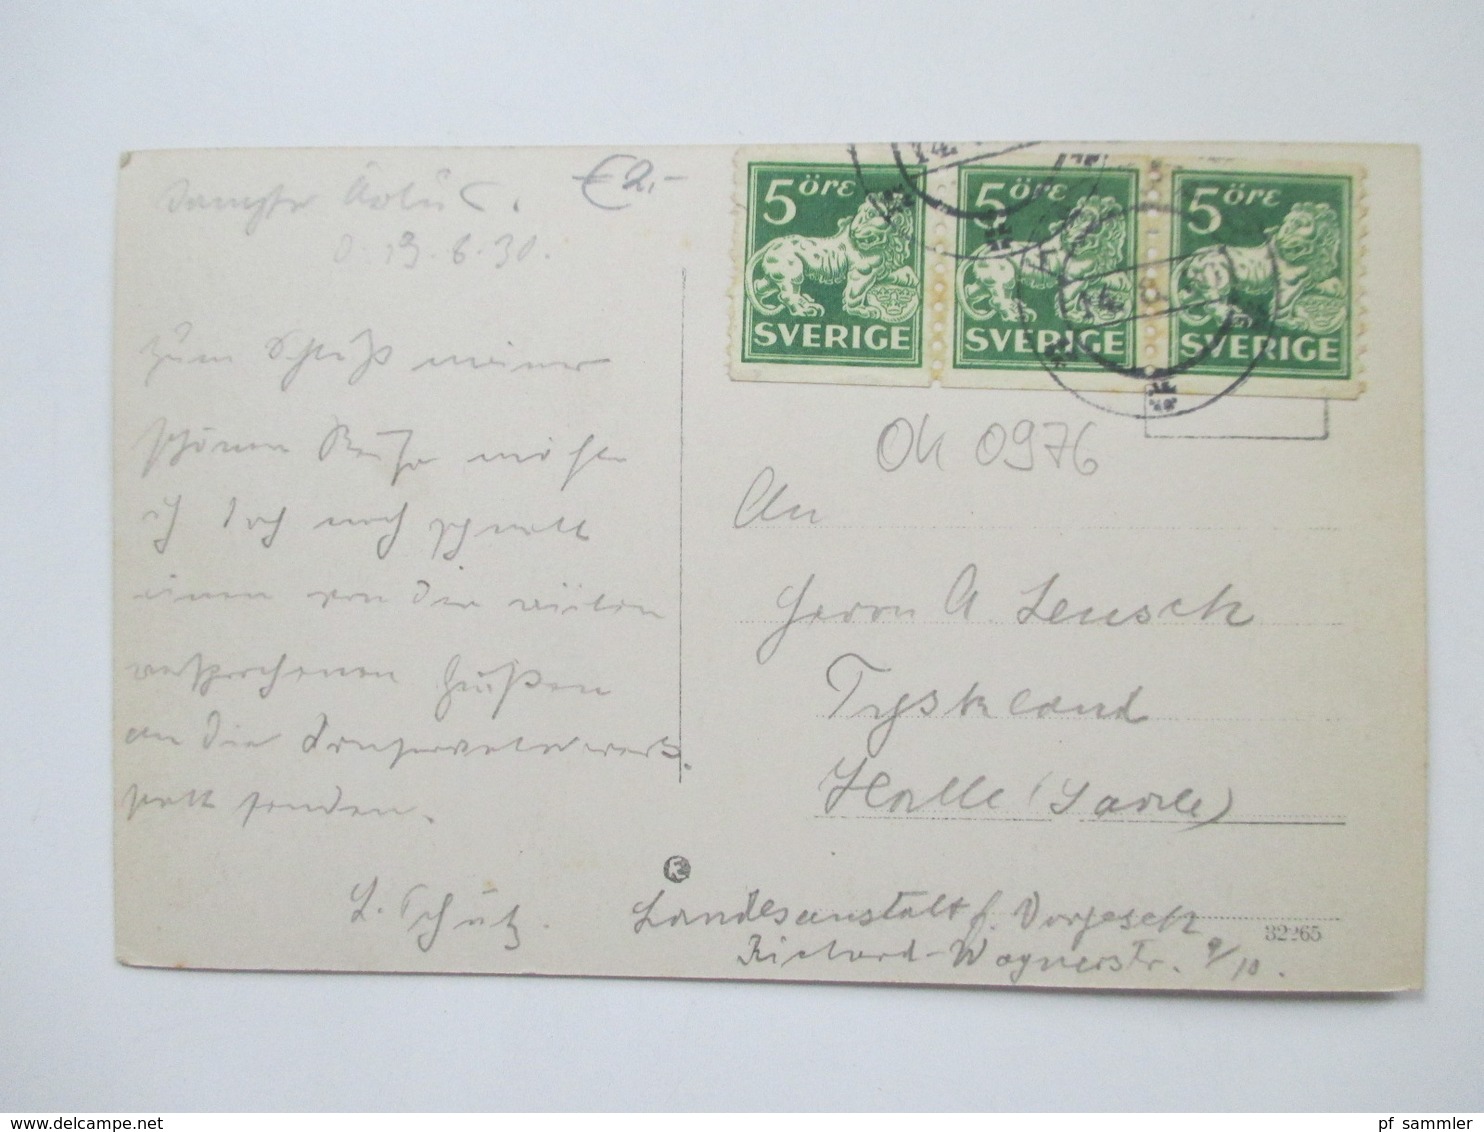 Dampfer
d. 13.6.30.
€2,-
5 öre
SVERIGE
5 öre
SVERIGE
5 öre
SVERIGE
14.
Zum Schluß meiner
schönen Reise möchte
ich doch noch schnell
einen von den vielen
versprochenen Grüßen
an die Konservatorwerk-
statt senden.
L. Schütz.
Oh 0976
An
Herrn A. Leusch
Tyskland
Halle (Saale)
Landesanstalt f. Vorgesch.
Richard-Wagnerstr. 9/10.
32265
www.delcampe.net
pf_sammler